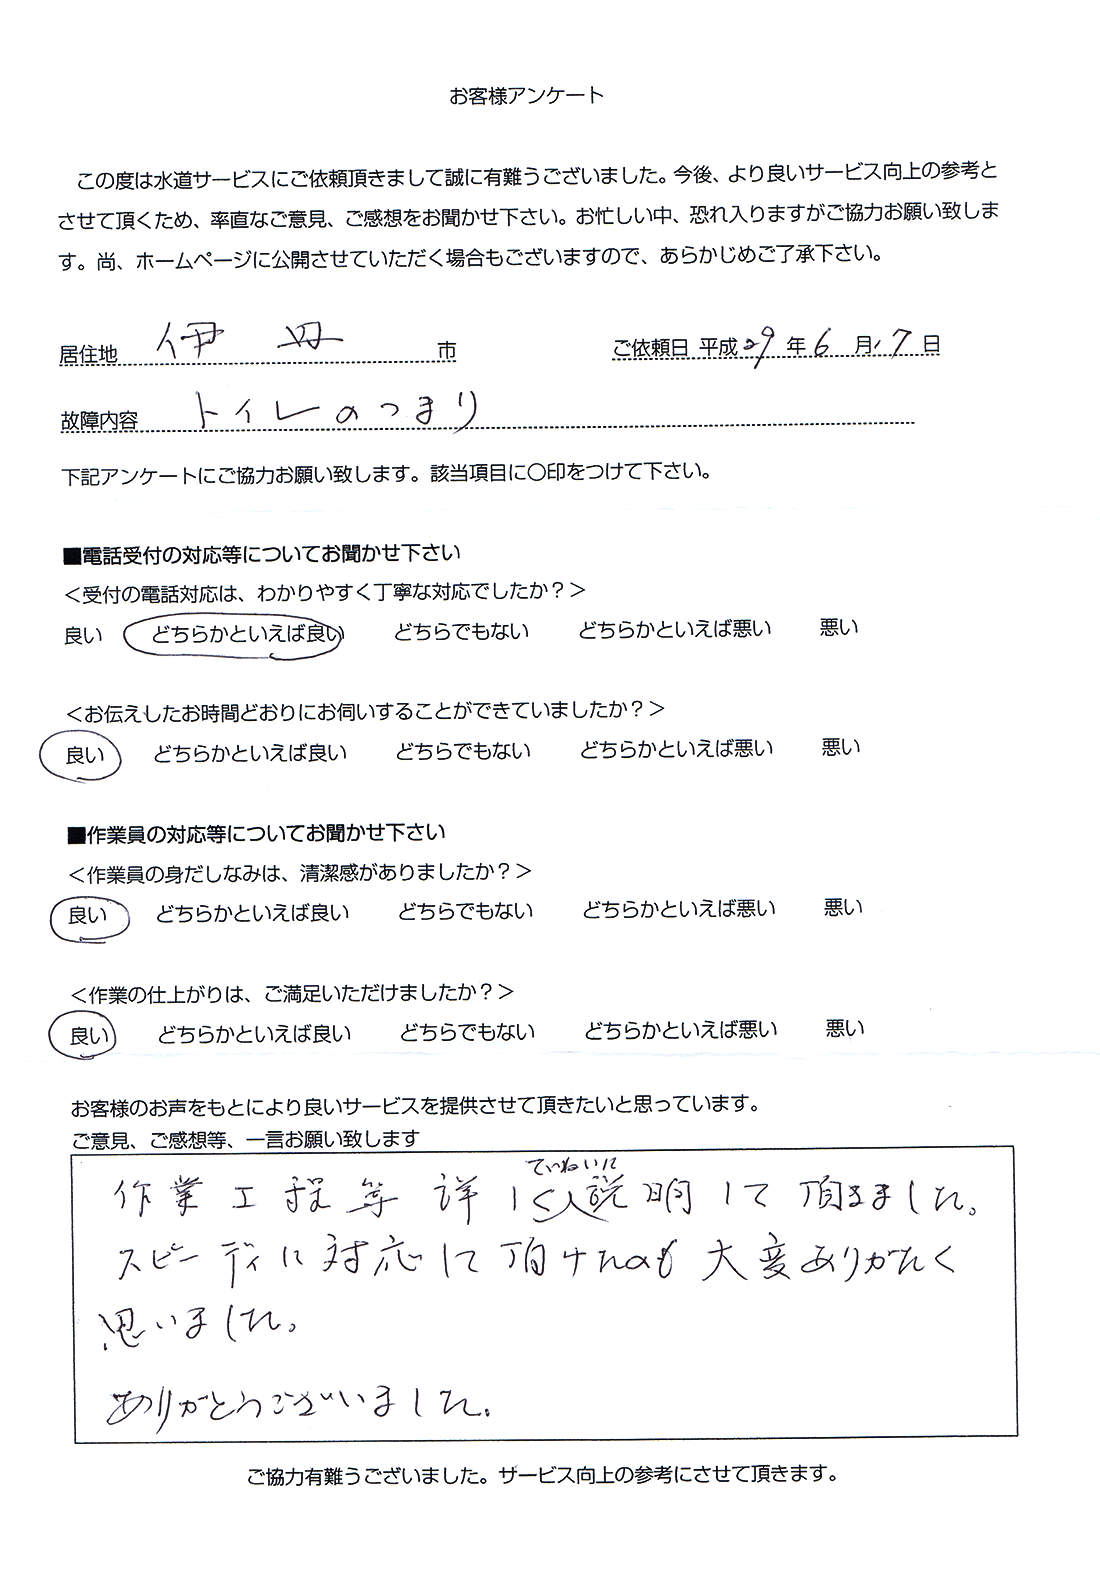 お客様アンケート
この度は水道サービスにご依頼頂きまして誠に有難うございました。今後、より良いサービス向上の参考と
させて頂くため、率直なご意見、ご感想をお聞かせ下さい。お忙しい中、恐れ入りますがご協力お願い致しま
す。尚、ホームページに公開させていただく場合もございますので、あらかじめご了承下さい。
居住地 伊丹 市 ご依頼日 平成29年6月17日
故障内容 トイレのつまり
下記アンケートにご協力お願い致します。該当項目に〇印をつけて下さい。
■電話受付の対応等についてお聞かせ下さい
＜受付の電話対応は、わかりやすく丁寧な対応でしたか？＞
良い どちらかといえば良い どちらでもない どちらかといえば悪い 悪い
＜お伝えしたお時間どおりにお伺いすることができていましたか？＞
良い どちらかといえば良い どちらでもない どちらかといえば悪い 悪い
■作業員の対応等についてお聞かせ下さい
＜作業員の身だしなみは、清潔感がありましたか？＞
良い どちらかといえば良い どちらでもない どちらかといえば悪い 悪い
＜作業の仕上がりは、ご満足いただけましたか？＞
良い どちらかといえば良い どちらでもない どちらかといえば悪い 悪い
お客様のお声をもとにより良いサービスを提供させて頂きたいと思っています。
ご意見、ご感想等、一言お願い致します
作業工程等 詳しくていねいに説明して頂きました。
スピーディに対応して頂けたのも大変ありがたく
思いました。
ありがとうございました。
ご協力有難うございました。サービス向上の参考にさせて頂きます。